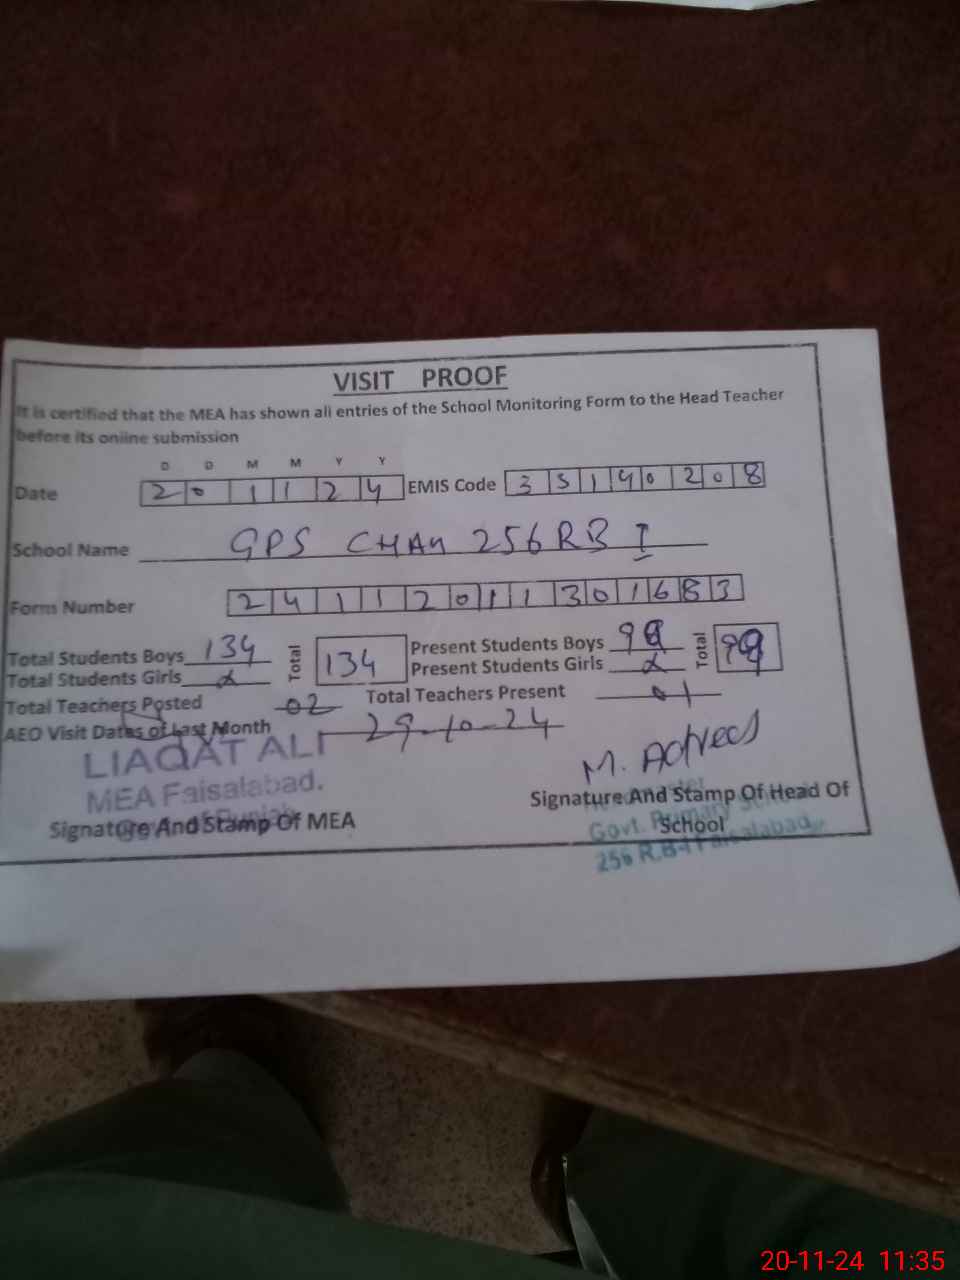 VISIT PROOF
It is certified that the MEA has shown all entries of the School Monitoring Form to the Head Teacher
before its online submission
D D M M Y Y
Date 2 0 1 1 2 4 EMIS Code 3 3 1 4 0 2 0 8
School Name GPS CHAK 256 RB I
Form Number 2 4 1 1 2 0 1 1 3 0 1 6 8 3
Total Students Boys 134 Total 134 Present Students Boys Total
Total Students Girls Present Students Girls
Total Teachers Posted 02 Total Teachers Present 01
AEO Visit Dates of Last Month 29-10-24
LIAQAT ALI
MEA Faisalabad.
M.
Signature And Stamp Of MEA
Signature And Stamp Of Head Of
School
Govt. Primary School
256 R.B-I Faisalabad
20-11-24 11:35